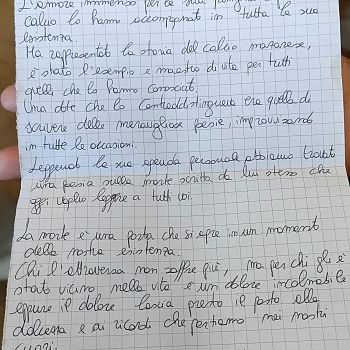 L'amore immenso per la sua
calcio lo hanno accompagnato in tutta la sua
esistenza.
Ha rappresentato la storia del calcio magarese,
è stato l'esempio e maestro di vita per tutti
quelli che lo hanno conosciuto.
Una dote che lo contraddistingueva era quella di
scrivere delle meravigliose poesie, improvvisando
in tutte le occasioni.
Leggendo la sua agenda personale abbiamo trovato
una poesia sulla morte scritta da lui stesso che
oggi voglio leggere a tutti voi.
La morte è una porta che si apre in un momento
della nostra esistenza.
Chi l'attraversa non soffre più, ma per chi gli è
stato vicino nella vita è un dolore incolmabile
eppure il dolore lascia presto il posto alla
dolcezza e ai ricordi che portiamo nei nostri
cuori.